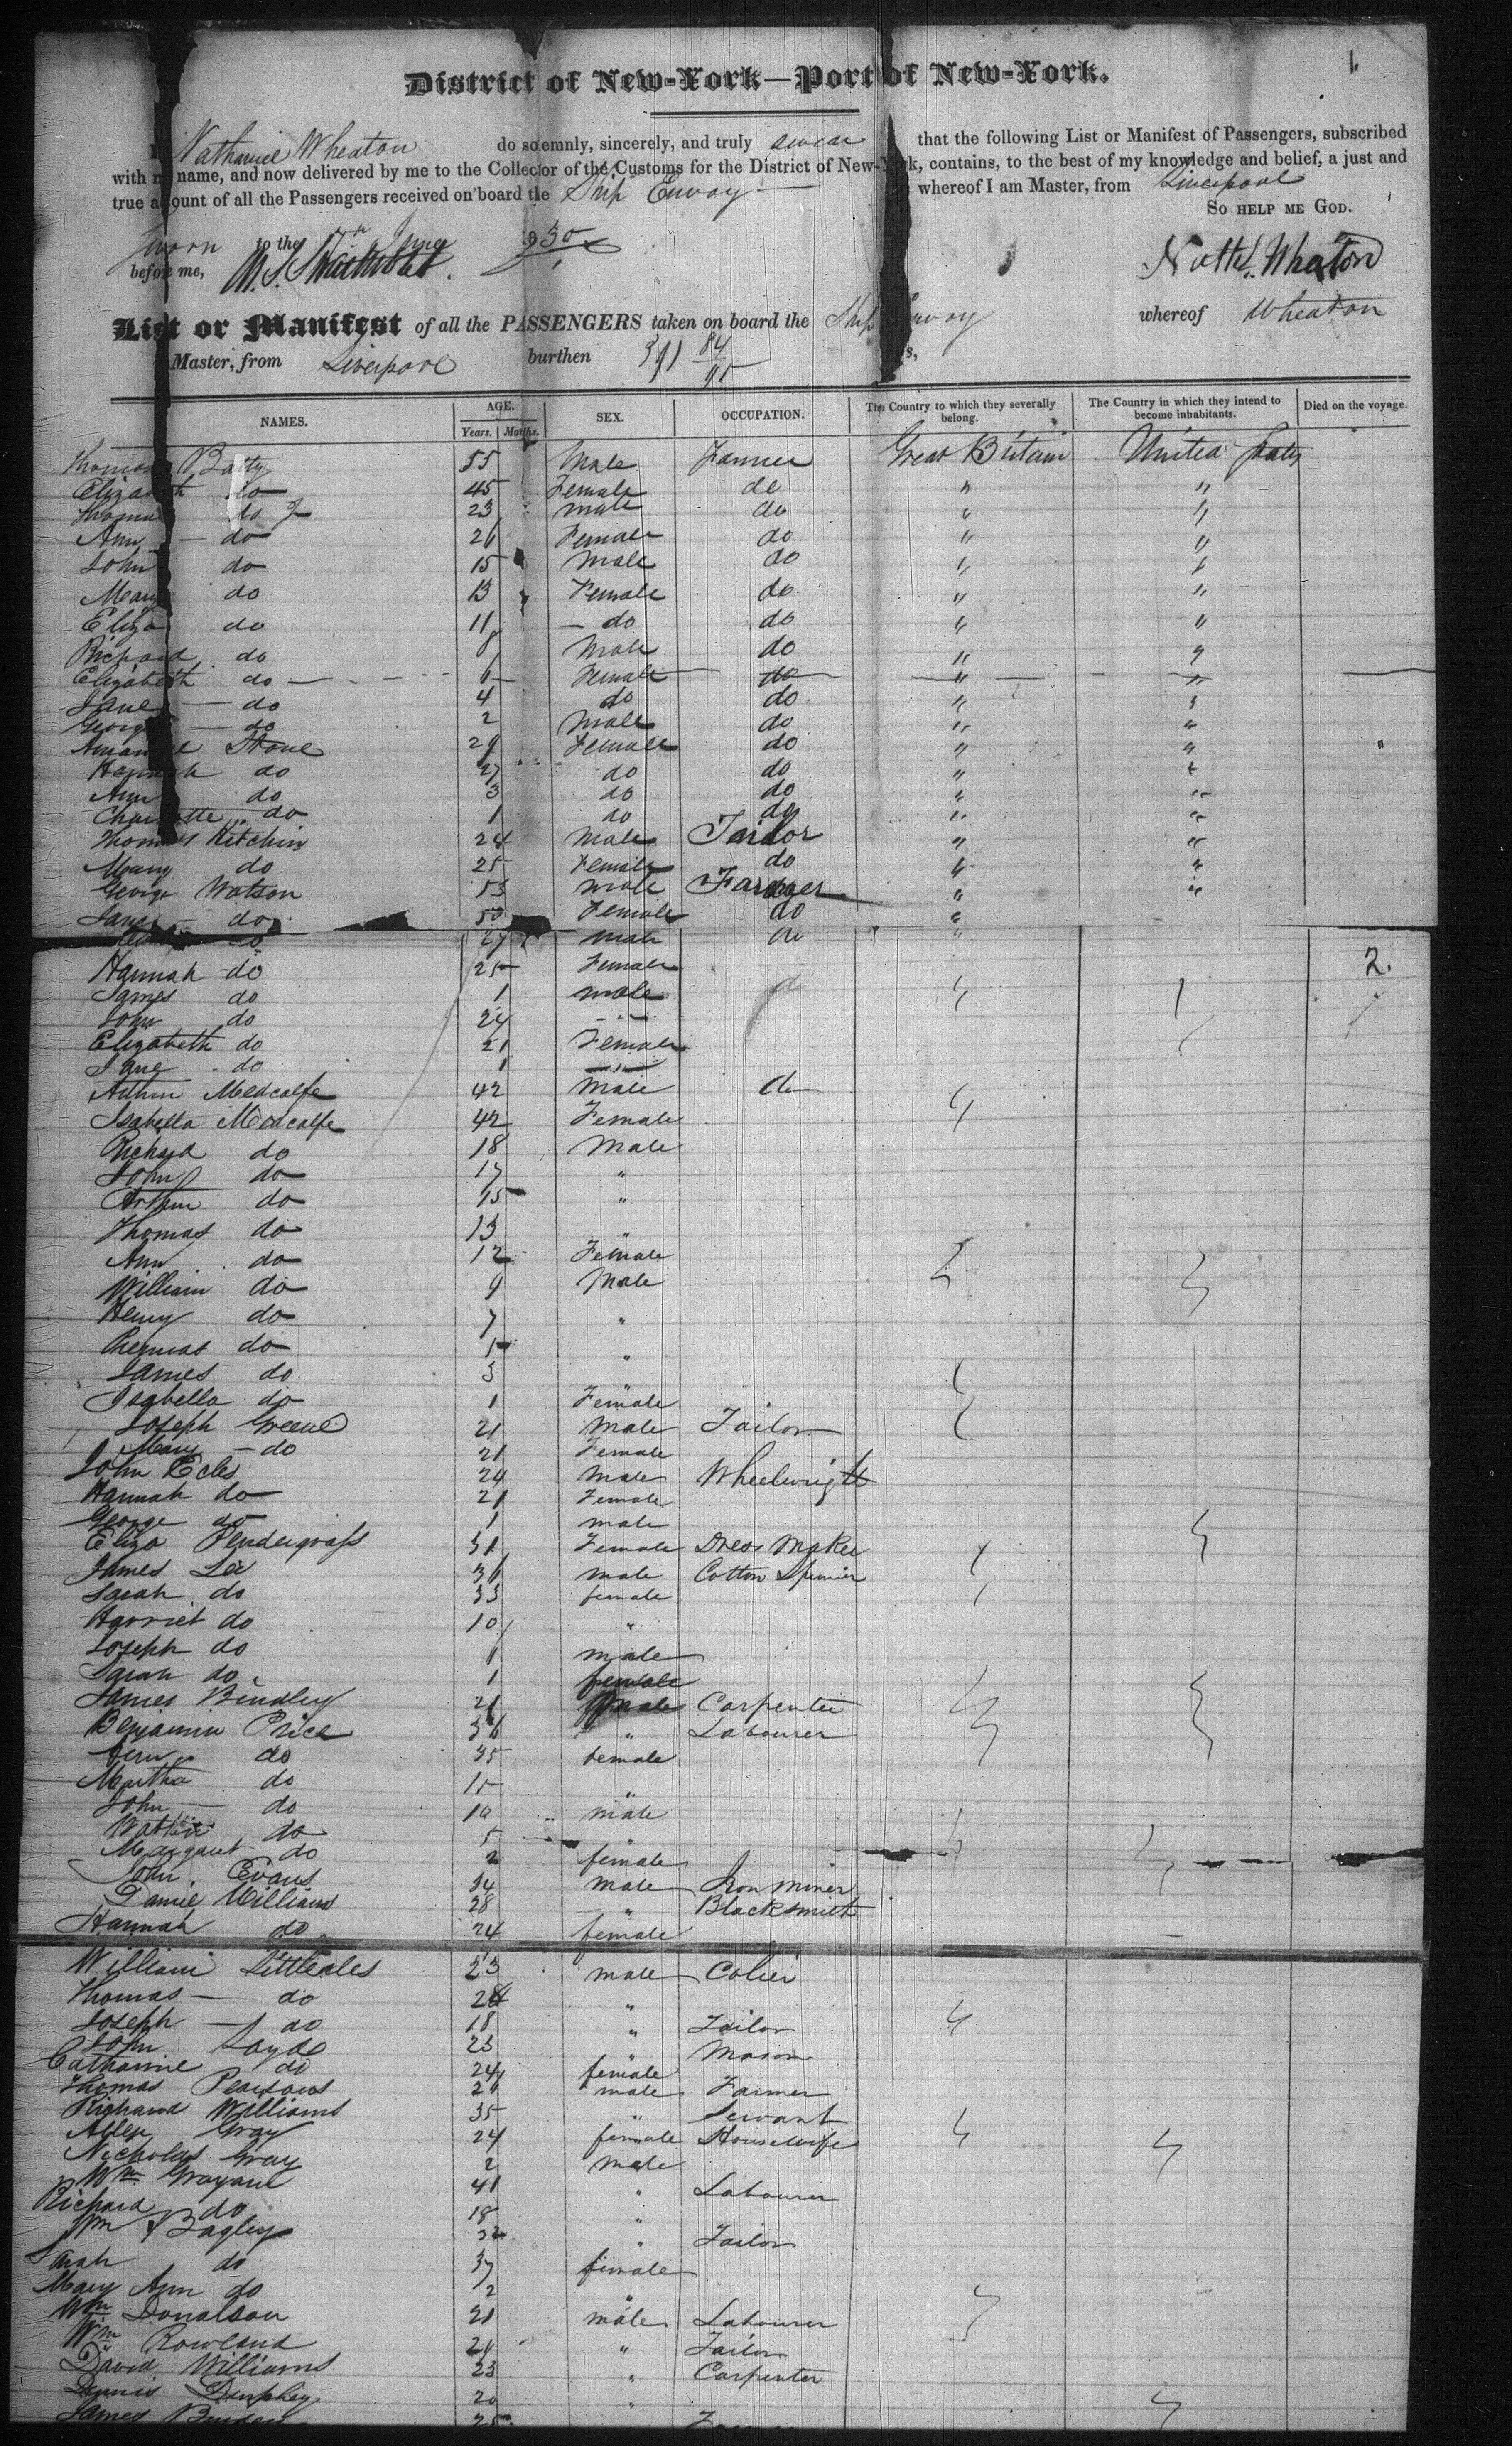 1.
District of New-York—Port of New-York.
Nathaniel Wheaton do solemnly, sincerely, and truly swear that the following List or Manifest of Passengers, subscribed
with my name, and now delivered by me to the Collector of the Customs for the District of New-York, contains, to the best of my knowledge and belief, a just and
true account of all the Passengers received on board the Ship Envoy whereof I am Master, from Liverpool
So help me God.
Sworn to the 7th June 1830
before me,
Nathl. Wheaton
List or Manifest of all the PASSENGERS taken on board the Ship Envoy whereof Wheaton
Master, from Liverpool burthen 391 84/95
NAMES. AGE. SEX. OCCUPATION. The Country to which they severally belong. The Country in which they intend to become inhabitants. Died on the voyage.
Years. Months.
Thomas Batty 55 Male Farmer Great Britain United States
Elizabeth do 45 Female do " "
Thomas do J 23 male do " "
Ann do 26 Female do " "
John do 15 Male do " "
Mary do 13 Female do " "
Eliza do 11 do do " "
Richard do 8 Male do " "
Elizabeth do 6 Female do " "
Jane do 4 do do " "
George do 2 Male do " "
Stone 29 Female do " "
Hannah do 27 do do " "
Ann do 3 do do " "
Charlotte do 1 do do " "
Thomas Kitchin 24 Male Tailor " "
Mary do 25 Female do " "
George Watson 53 male Farmer " "
Jane do 50 Female do "
do 27 male do "
2.
Hannah do 25 Female
James do 1 male do
John do 24 "
Elizabeth do 21 Female
Jane do 1 "
Arthur Medcalfe 42 Male do
Isabella Medcalfe 42 Female
Richard do 18 Male
John do 17 "
Arthur do 15 "
Thomas do 13 "
Ann do 12 Female
William do 9 Male
Henry do 7 "
do 5 "
James do 3 "
Isabella do 1 Female
Joseph Greene 21 Male Tailor
Mary do 21 Female
John Ecles 24 Male Wheelwright
Hannah do 21 Female
George do 1 male
Eliza Pendergrass 31 Female Dress Maker
James Lee 36 male Cotton Spiner
Sarah do 33 female
Harriet do 10 "
Joseph do 1 male
Sarah do 1 female
James Bindley 21 Male Carpenter
Benjamin Price 36 " Labourer
do 35 female
Martha do 15 "
John do 10 male
do 5 "
Margaret do 2 female
John Evans 34 male Iron Miner
Daniel Williams 28 " Blacksmith
Hannah do 24 female
William Littleales 23 male Colier
Thomas do 24 "
Joseph do 18 " Tailor
John Loyde 23 " Mason
Catharine do 24 female
Thomas Pearsons 26 male Farmer
Richard Williams 35 " Servant
Gray 24 female Housewife
Nicholas Gray 2 male
Wm 41 " Labourer
Richard do 18 "
Wm Bagley 32 " Tailor
Sarah do 37 female
Mary Ann do 2 "
Wm Donalson 21 male Labourer
Wm Rowland 20 " Tailor
David Williams 23 " Carpenter
Dennis Dunphey 20 "
James 25